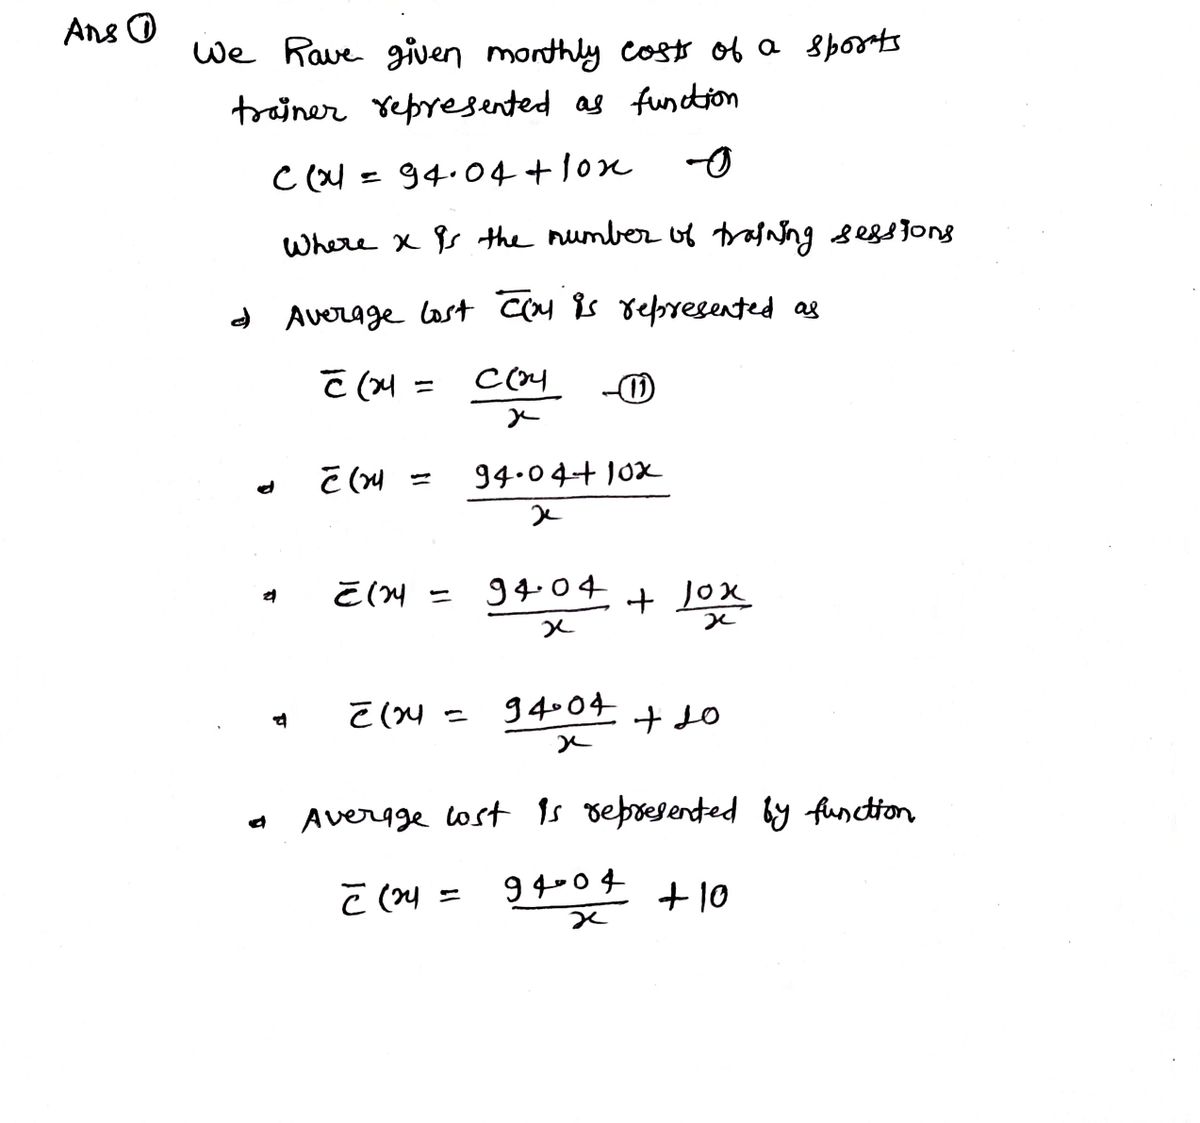 Ans ①
We have given monthly costs of a sports
trainer represented as function
C(x) = 94.04 + 10x —①
Where x is the number of training sessions
⇒ Average Cost C̅(x) is represented as
C̅(x) = C(x)/x —⑪
⇒ C̅(x) = (94.04 + 10x)/x
⇒ C̅(x) = 94.04/x + 10x/x
⇒ C̅(x) = 94.04/x + 10
⇒ Average Cost is represented by function
C̅(x) = 94.04/x + 10